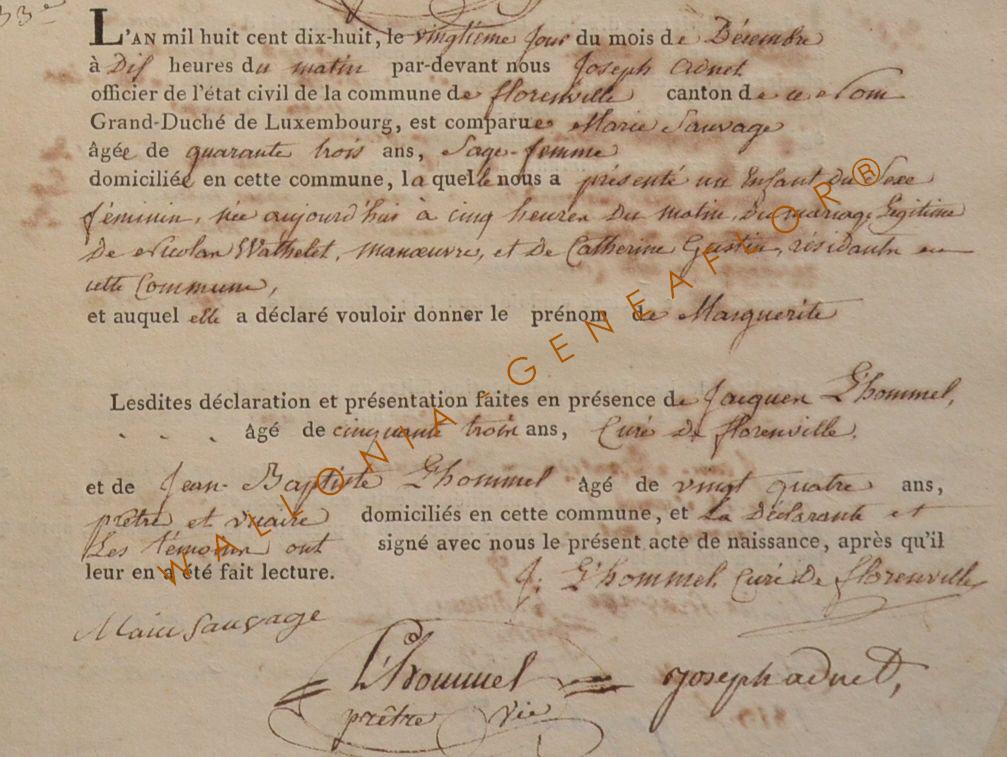 33e
L'AN mil huit cent dix-huit, le vingtième jour du mois de Décembre
à Dix heures du matin par-devant nous Joseph Adnet
officier de l'état civil de la commune de florenville canton de ce Nom
Grand-Duché de Luxembourg, est comparue Marie Sauvage
âgée de quarante trois ans, Sage-femme
domiciliée en cette commune, la quelle nous a présenté un Enfant Du Sexe
féminin, née aujourd'hui à cinq heures Du matin, Du mariage Légitime
De Nicolas Wathelet, manœuvre, et De Catherine Gustin, résidants en
cette Commune,
et auquel elle a déclaré vouloir donner le prénom de Marguerite
Lesdites déclaration et présentation faites en présence de Jacques L'hommel,
âgé de cinquante trois ans, Curé De florenville,
et de Jean-Baptiste L'hommel âgé de vingt quatre ans,
prêtre et vicaire domiciliés en cette commune, et La Déclarante et
Les témoins ont signé avec nous le présent acte de naissance, après qu'il
leur en a été fait lecture. J. L'hommel Curé De florenville
Marie Sauvage
L'hommel Joseph adnet,
prêtre vic
WALLONIA-GENEAFLOR®